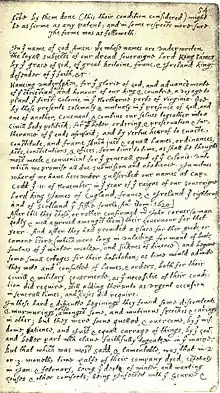 54
by them done (this their condition considered) might
be as firme as any patent; and in some respects more sure.
The forme was as followeth.
In yᵉ name of god Amen. We whose names are underwriten,
the loyall subjects of our dread soveraigne Lord King James
by yᵉ grace of god, of great Britaine, franc, & Ireland king,
defender of yᵉ faith, &c.
Haveing undertaken, for yᵉ glorie of god, and advancemente
of yᵉ christian faith and honour of our king & countrie, a voyage to
plant yᵉ first colonie in yᵉ Northerne parts of Virginia. doe
by these presents solemnly & mutualy in yᵉ presence of god, and
one of another, covenant, & combine our selves togeather into a
civill body politick; for
and by vertue hearof to enacte,
constitute, and frame such just & equall lawes, ordinances,
Acts, constitutions, & offices, from time to time, as shall be thought
most meete & convenient for yᵉ generall good of yᵉ colonie: unto
which we promise all due submission and obedience. In witnes
wherof we have hereunder subscribed our names at cap-
Codd yᵉ .11. of November, in yᵉ year of yᵉ raigne of our soveraigne
Lord king James of England, franc, & Ireland yᵉ eighteenth
and of Scotland yᵉ fiftie fourth. Ano: Dom. 1620.
After this they chose, or rather confirmed mʳ John carver (a man
godly & well approved amongst them) their Governour for that
year. And after they had provided a place for their goods, or
comone store,
foulnes of yᵉ winter weather, and sicknes of diverce) and begune
some small cottages for their habitation; as time would admitte
they mette and consulted of lawes, & orders, both for their
civill & military Governmente, as yᵉ necessitie of their condi-
tion did require, still adding therunto as urgent occasion
in severall times, and
In these hard & difficulte beginings they found some discontents
& murmurings amongst some, and mutinous speeches & cariags
in other; but they were soone quelled, & overcome, by yᵉ wis-
dome, patience, and just & equall cariage of things, by yᵉ Govʳ
and better part
But that which was most sadd & lamentable, was, that in 2.
or 3. moneths time halfe of their company dyed, espetialy
in Jan: & february, being yᵉ depth of winter, and wanting
houses & other comforts; being Infected with yᵉ scurvie &